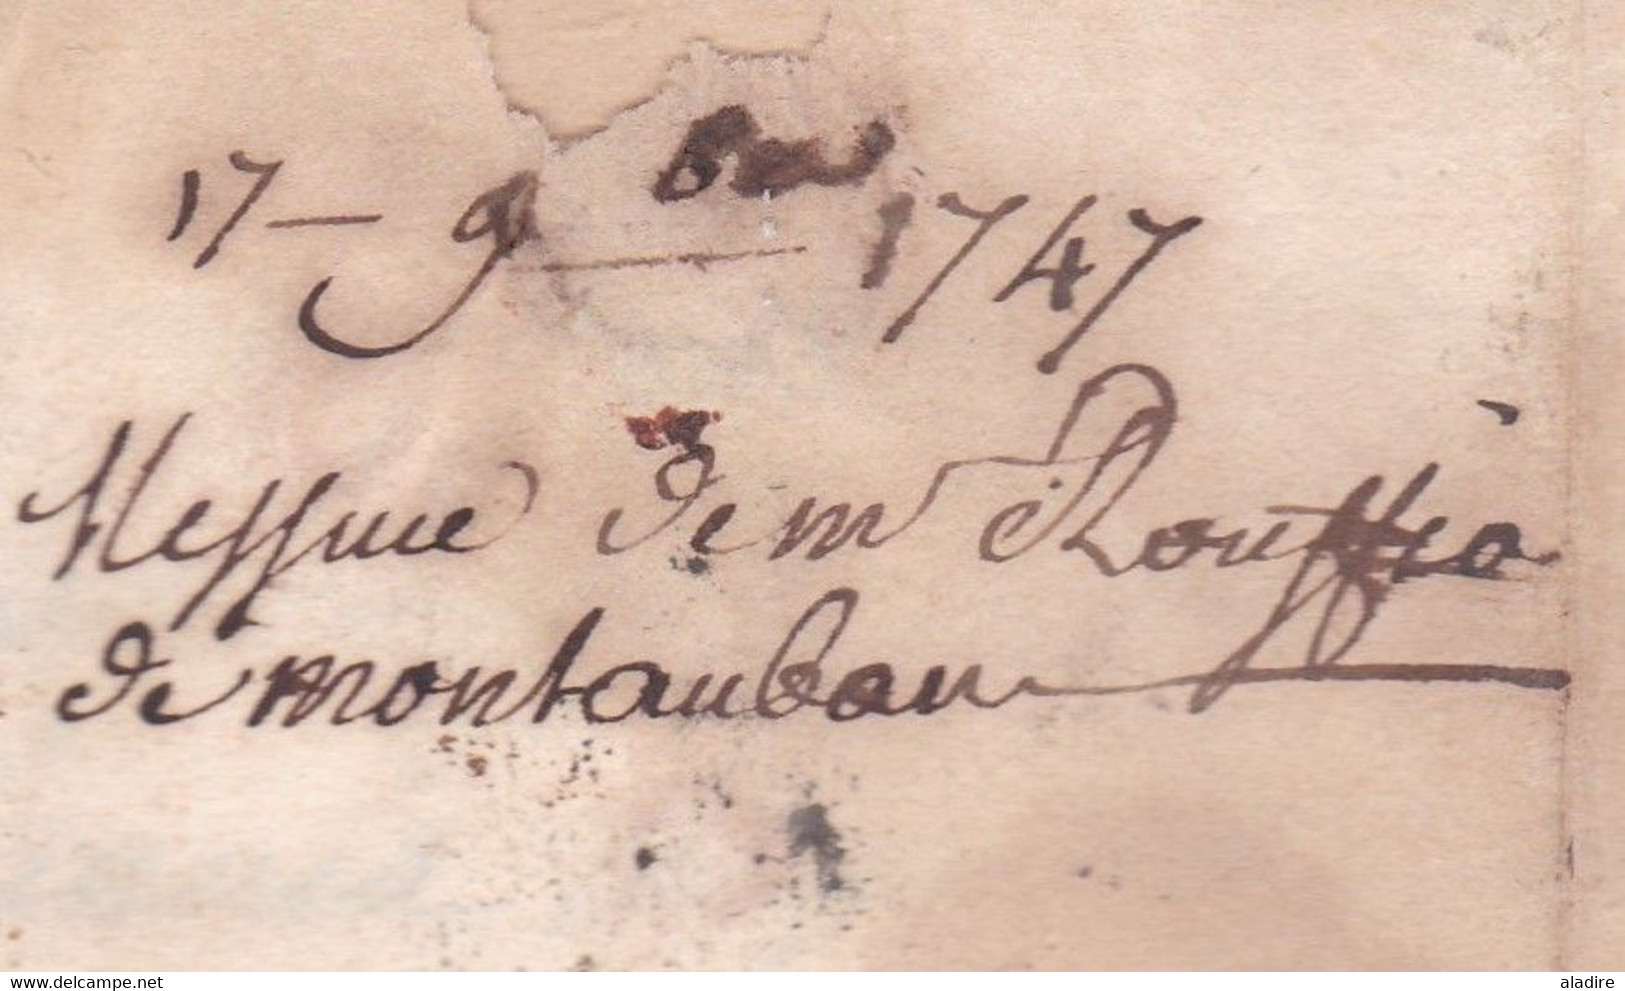 17 — 9bre 1747
Messive de mr Rouffio
de montauban
delcampe.net
aladire